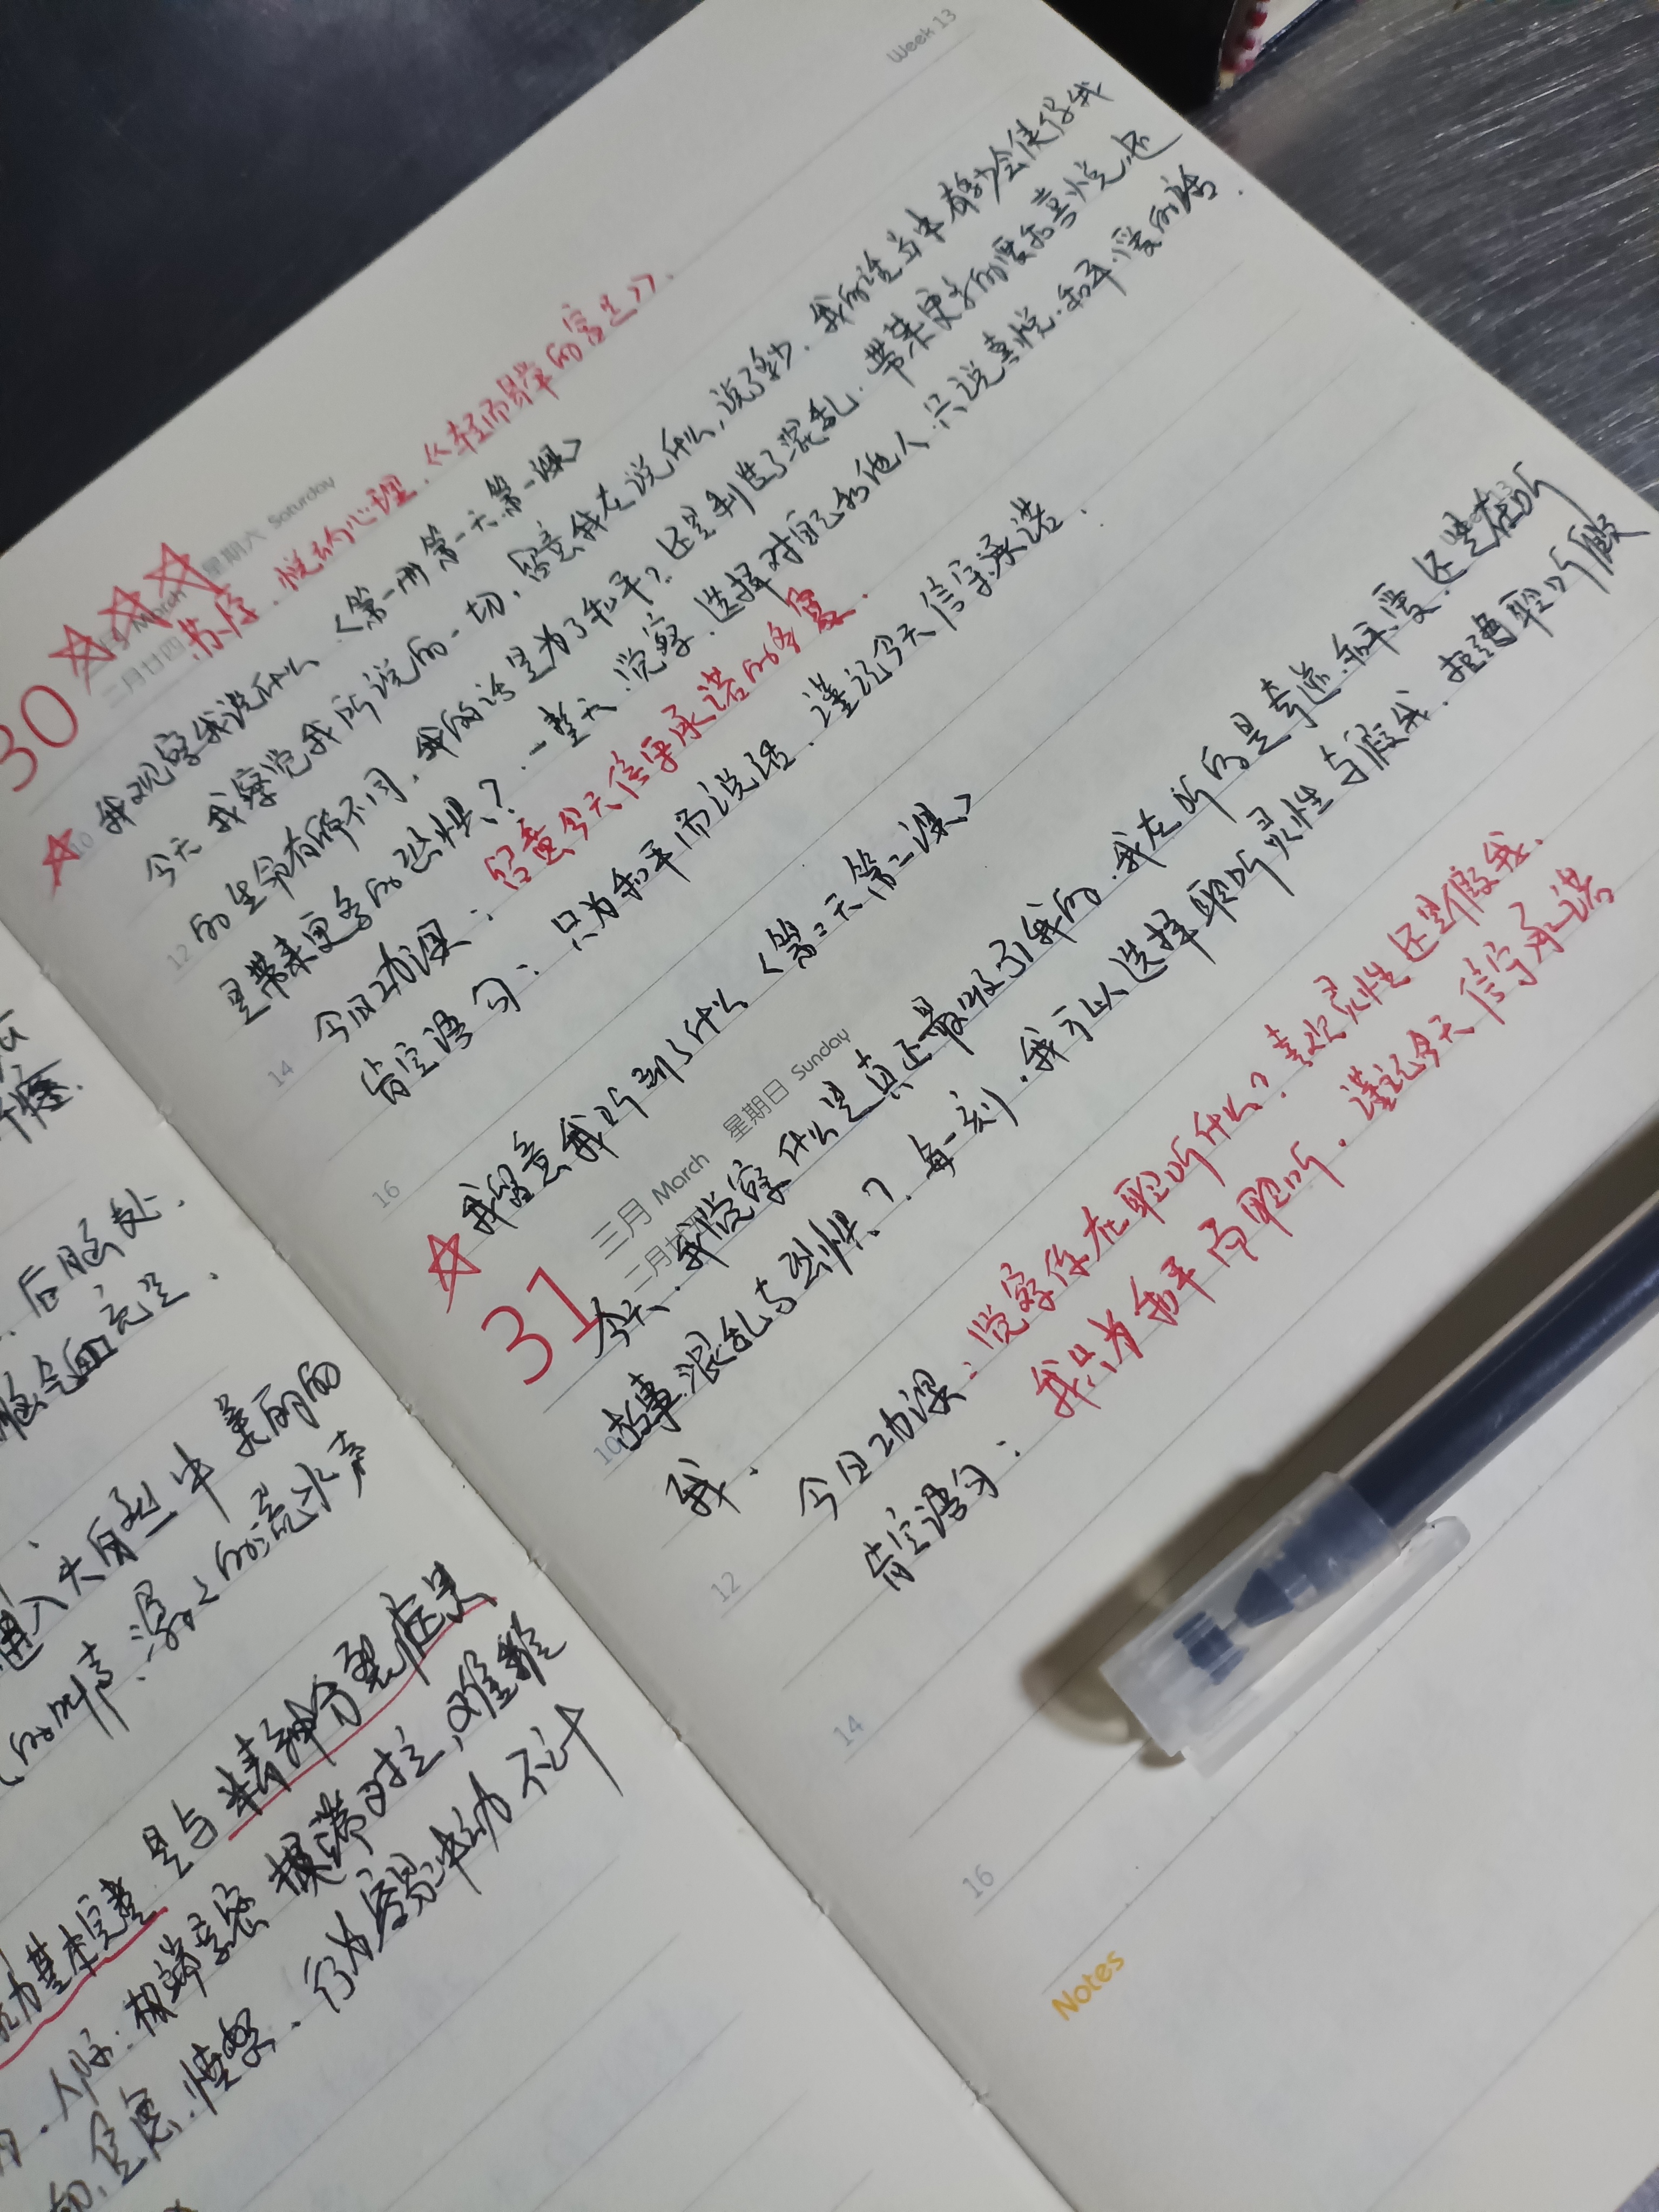 Week 13
30
三月 March 星期六 Saturday
二月廿四
苏序．悦纳心理．《轻而易举的富足》．
我观察我说什么．〈第一册第一天第一课〉
10
今天我察觉我所说的一切，留意我在说什么，说了多少．我的话当中有多少会使得我
的生命有所不同．我的话是为了和平？还是制造了混乱．带来更多的爱和喜悦，还
12
是带来更多的恐惧？．一整天．觉察．选择对自己和他人．只说喜悦．和平．爱的话．
今日功课：留意今天信守承诺的多寡．
肯定语句：只为和平而说话．谨记今天信守承诺．
14
我留意我听到了什么〈第二天第二课〉
16
31
三月 March 星期日 Sunday
13
今天、我觉察什么是真正最吸引我的．我在听的是奇迹．和平．爱．还是在听
故事．混乱与恐惧？．每一刻．我可以选择聆听灵性与假我．拒绝聆听假
10
我．
今日功课：觉察你在聆听什么？喜欢灵性还是假我．
肯定语句：我只为和平而聆听．谨记今天信守承诺
12
14
16
Notes
后脑处．
进入大自然中美丽的
的叫声．潺潺的流水声
力基本完整 是与精神分裂症是
人际：极端亲密
焦虑．愤怒、行为容易冲动不计